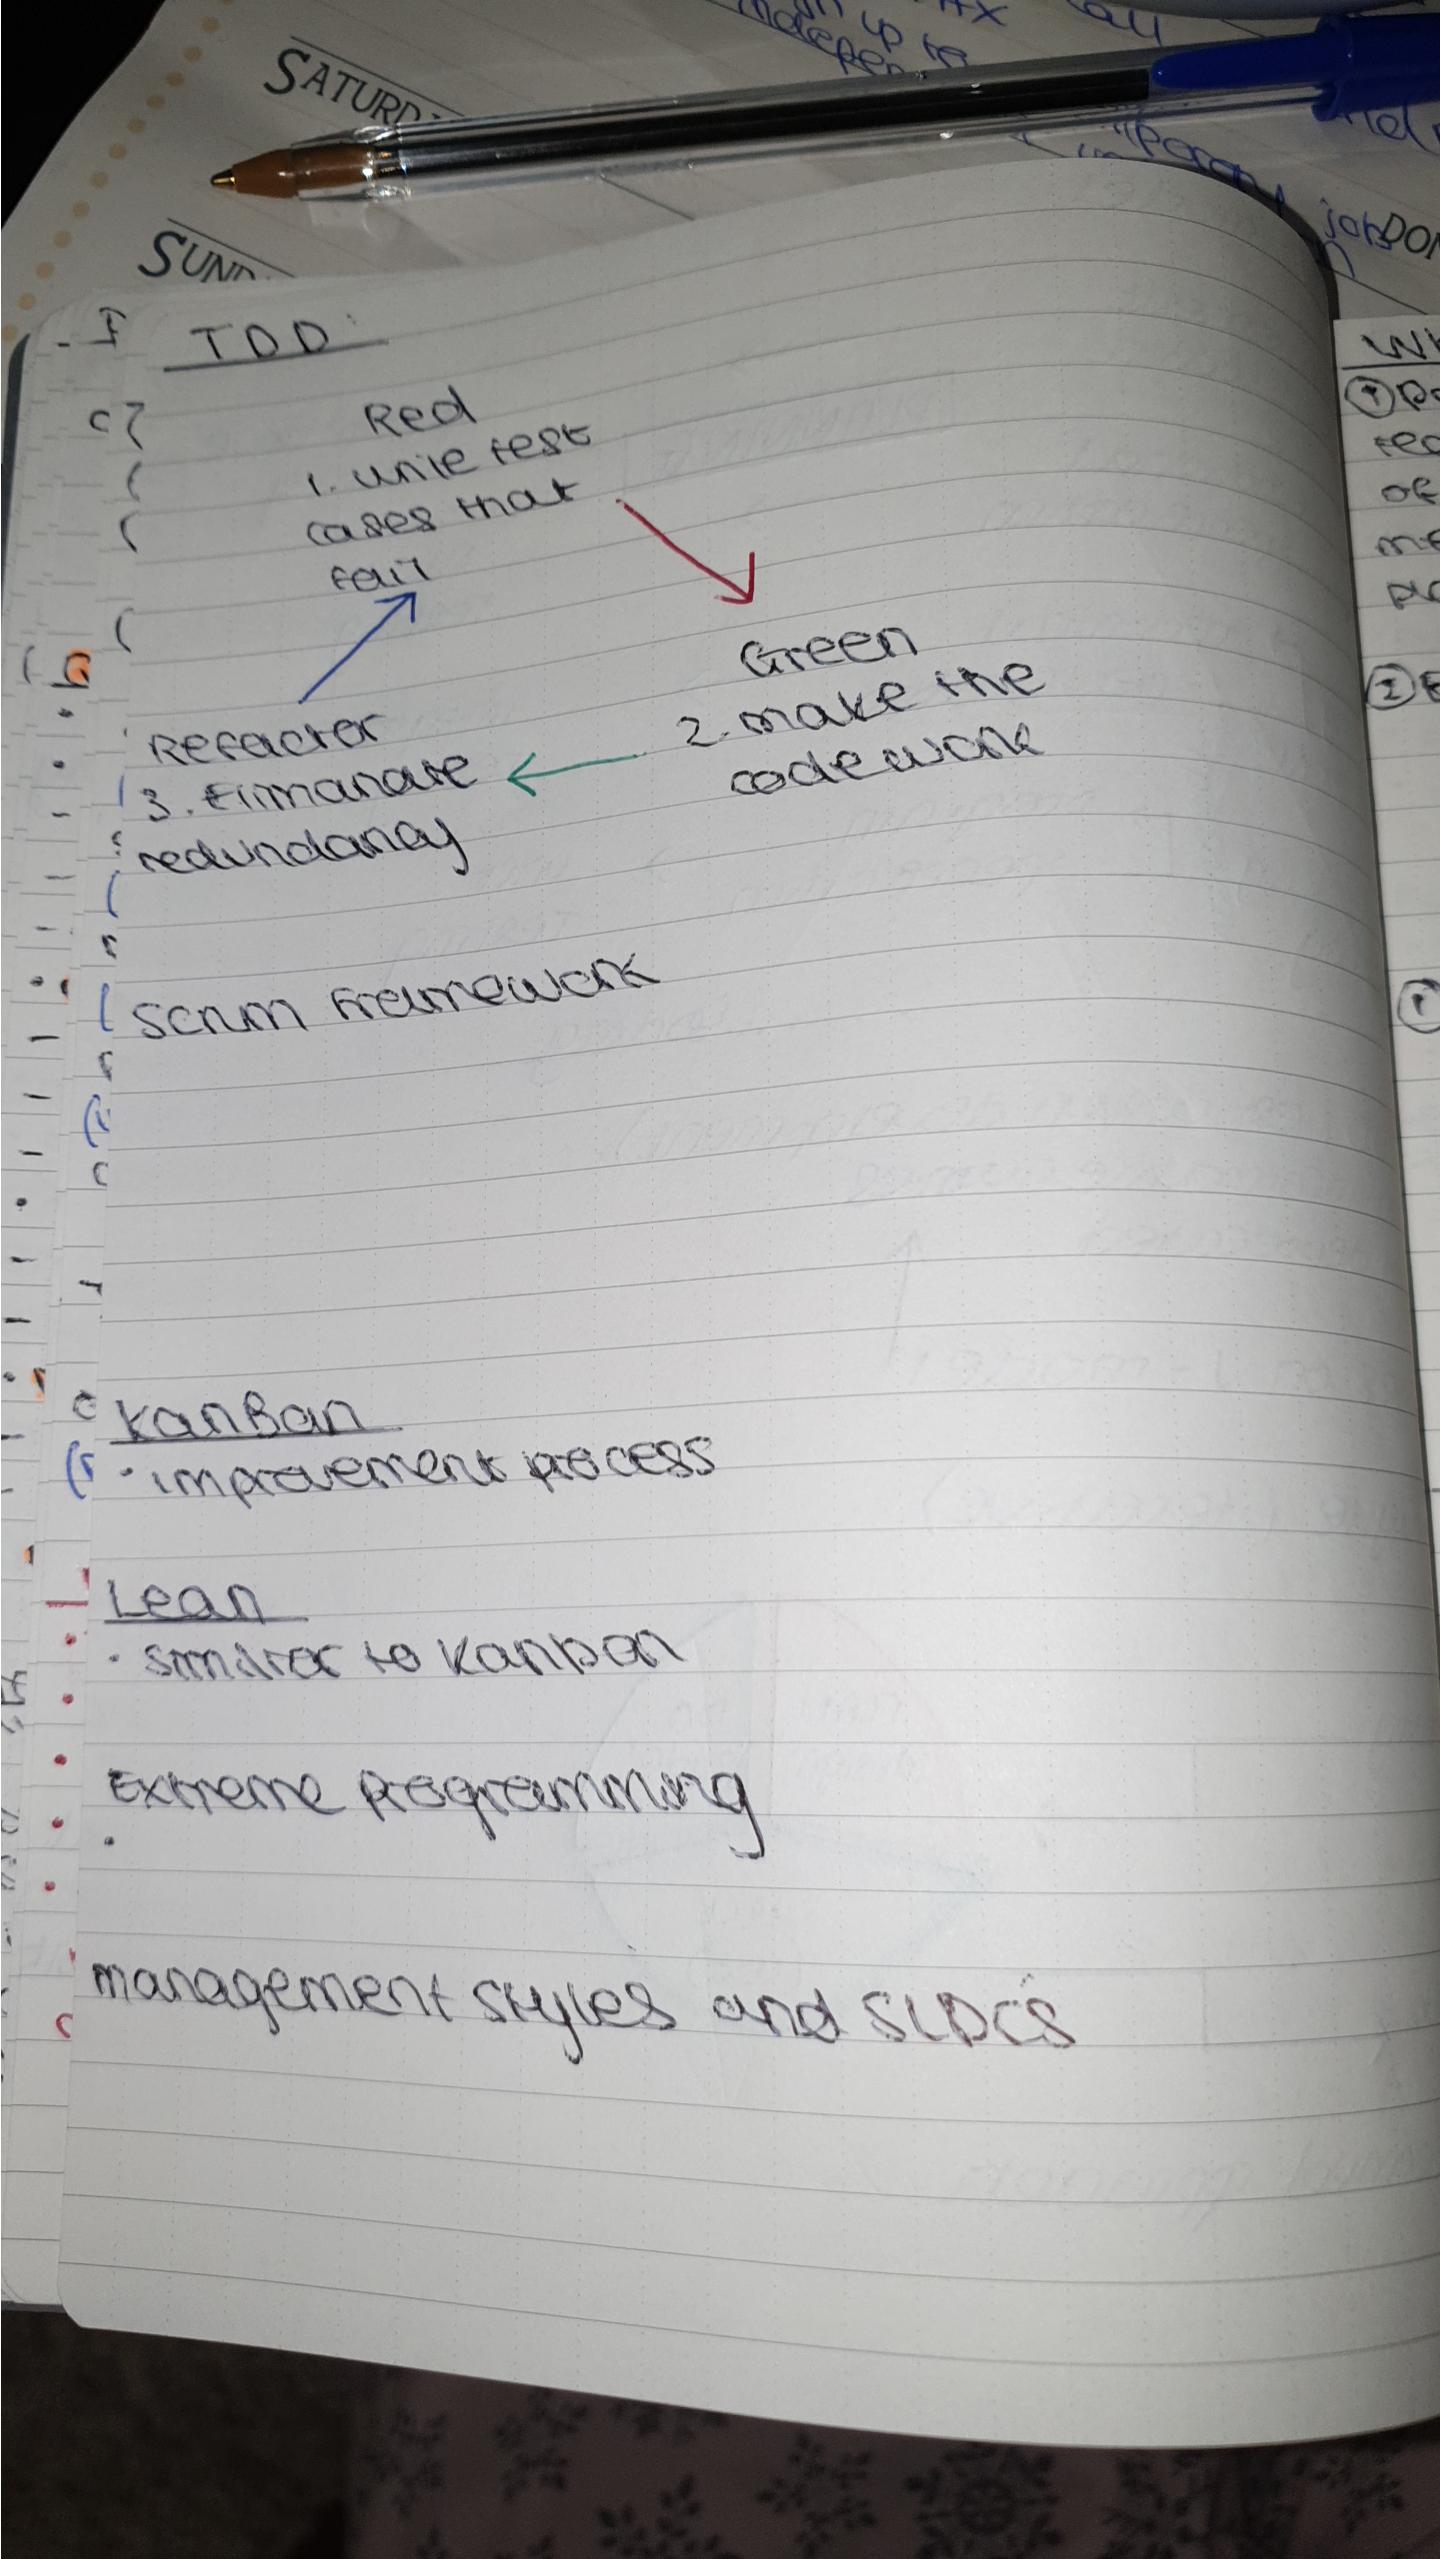 SATURD
SUND
TDD
Red
1. write test
cases that
fail
Green
2. make the
code work
Refactor
3. Elimanate
redundancy
Scrum Framework
KanBan
• improvement process
Lean
• similar to Kanban
Extreme programming
•
management styles and SLDC's